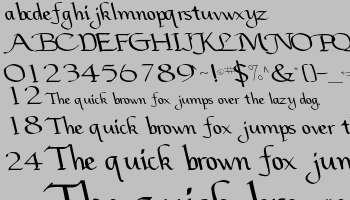 abcdefghijklmnopqrstuvwxyz
ABCDEFGHIJKLMNOPQ
0123456789~!@#$%^&*()-_
12 The quick brown fox jumps over the lazy dog.
18 The quick brown fox jumps over t
24 The quick brown fox jum
The quick brown